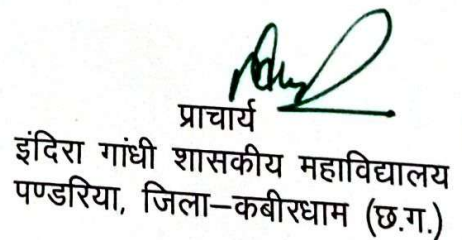 प्राचार्य
इंदिरा गांधी शासकीय महाविद्यालय
पण्डरिया, जिला–कबीरधाम (छ.ग.)